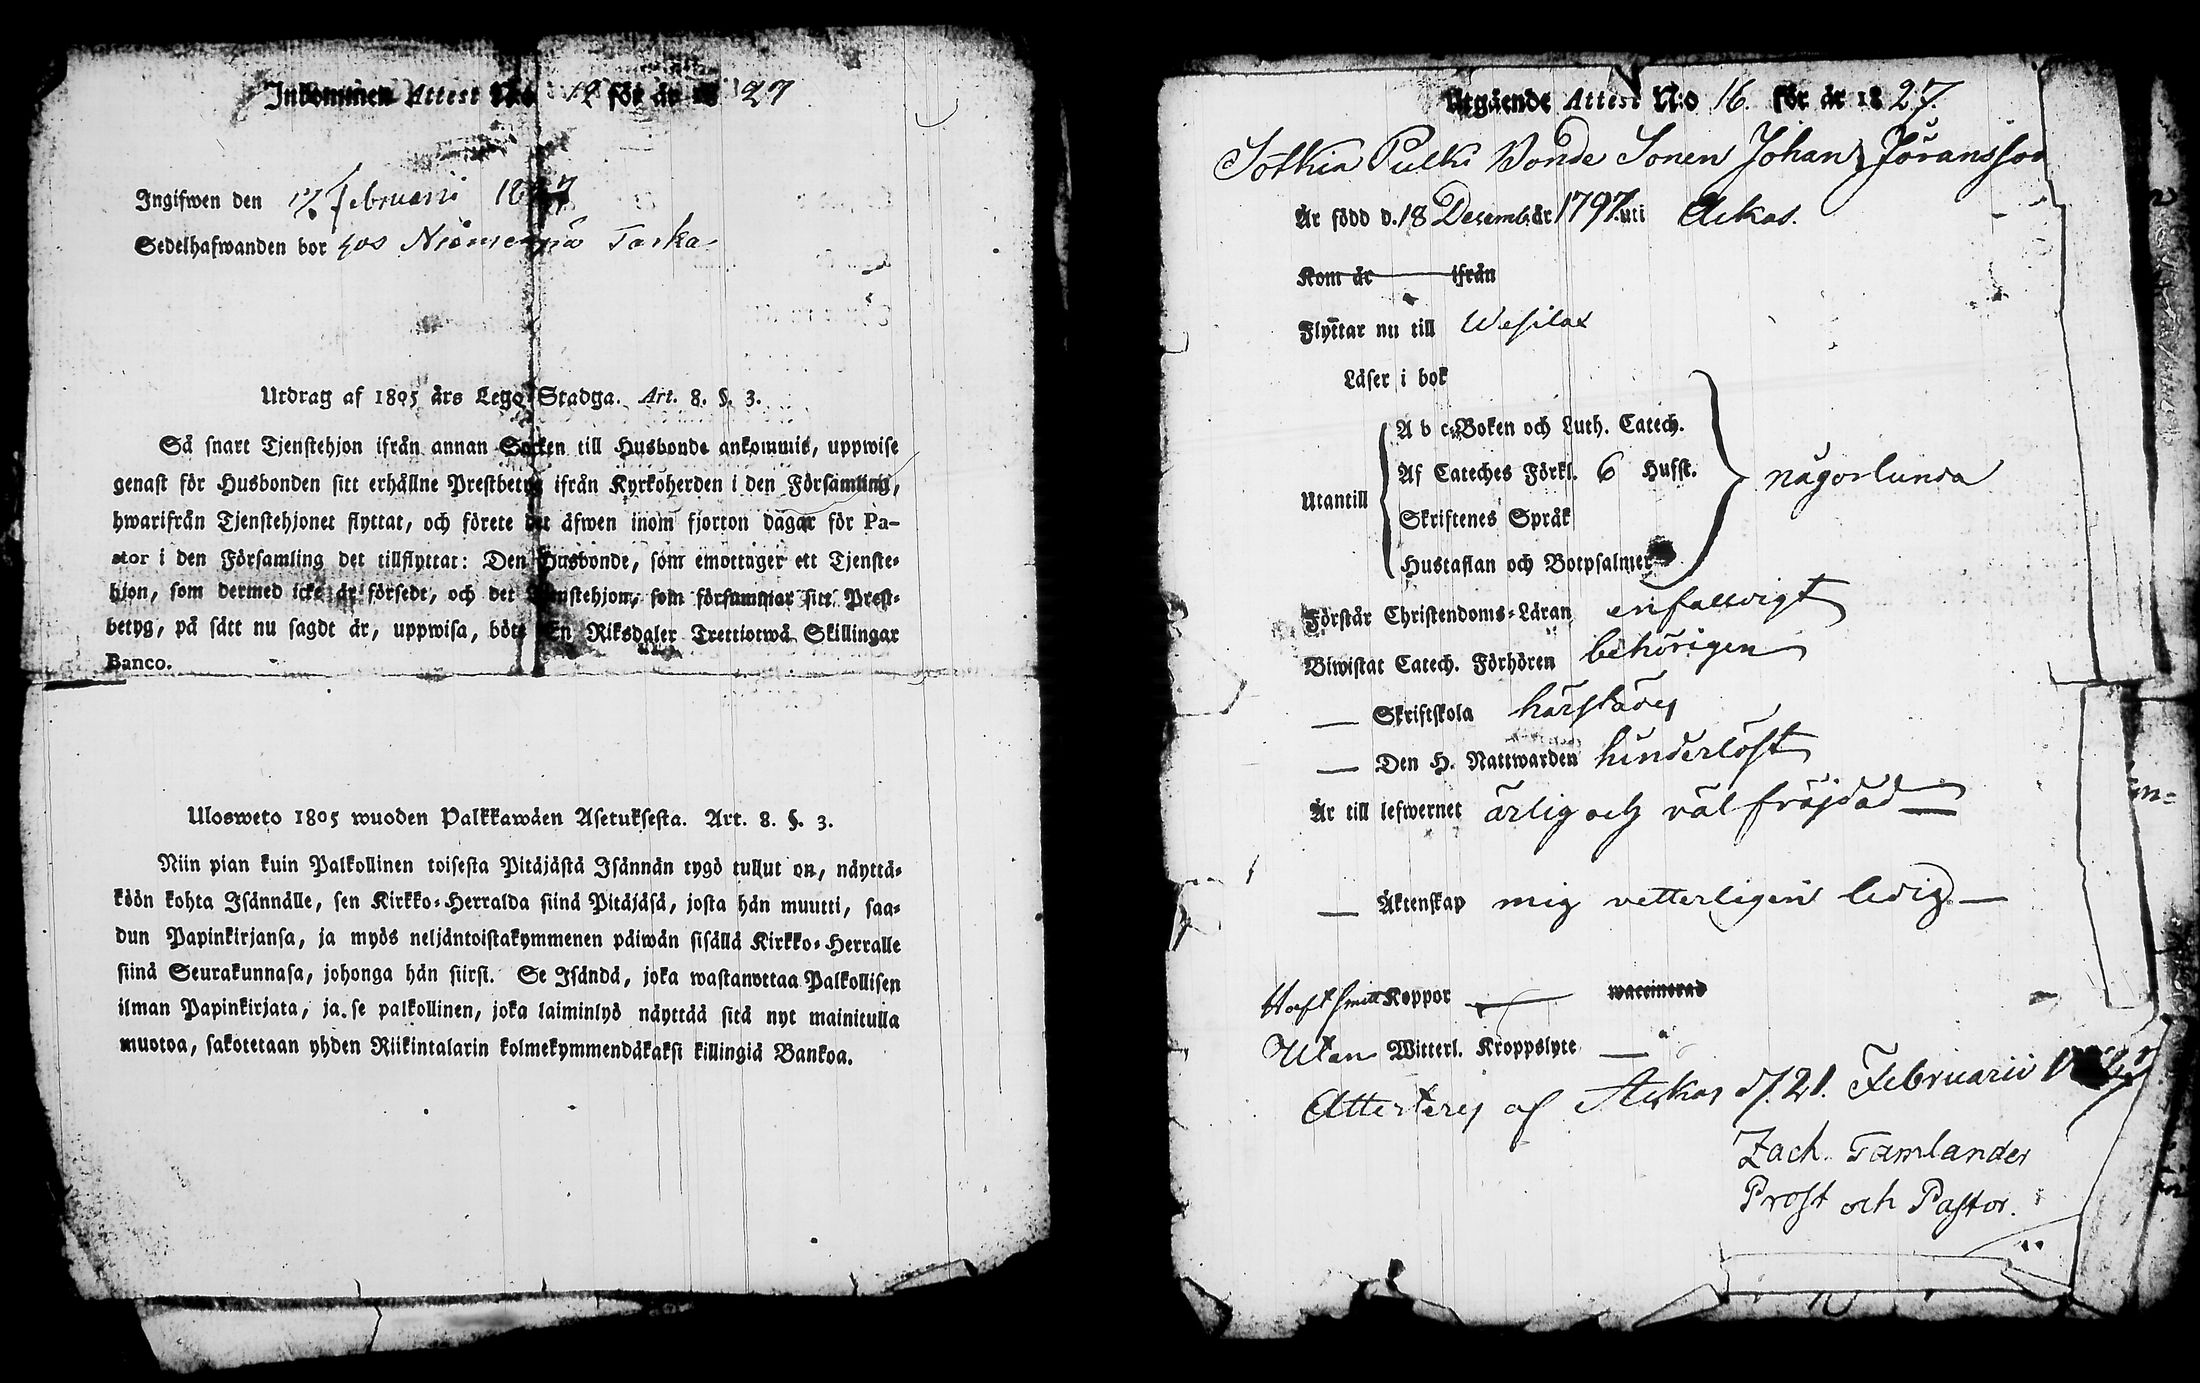 Inkommen Attest N:o 12 för år 18 27
Ingifwen den 17 Februarii 1827
Sedelhafwanden bor hos Taska
Utdrag af 1805 års Lego Stadga. Art. 8. §. 3.
Så snart Tjenstehjon ifrån annan Socken till Husbonde ankommit, uppwise
genast för Husbonden sitt erhållne Prestbetyg ifrån Kyrkoherden i den Församling,
hwarifrån Tjenstehjonet flyttat, och förete det äfwen inom fjorton dagar för Pa-
stor i den Församling det tillflyttat: Den Husbonde, som emottager ett Tjenste-
hjon, som dermed icke är försedt, och det Tjenstehjon, som försummar sitt Prest-
betyg, på sätt nu sagdt är, uppwisa, böte En Riksdaler Trettiotwå Skillingar
Banco.
Ulosweto 1805 wuoden Palkkawäen Asetuksesta. Art. 8. §. 3.
Niin pian kuin Palkollinen toisesta Pitäjästä Isännän tygö tullut on, näyttä-
köön kohta Isännälle, sen Kirkko-Herralda siinä Pitäjäsä, josta hän muutti, saa-
dun Papinkirjansa, ja myös neljäntoistakymmenen päiwän sisällä Kirkko-Herralle
siinä Seurakunnasa, johonga hän siirsi. Se Isändä, joka wastanottaa Palkollisen
ilman Papinkirjata, ja se palkollinen, joka laiminlyö näyttää sitä nyt mainitulla
muotoa, sakotetaan yhden Riikintalarin kolmekymmendäkaksi killingiä Bankoa.
Utgående Attest N:o 16. för år 18 27.
Sotkia Pulki Bonde Sonen Johan Jöransson
Är född d. 18 Decemb. år 1797. uti Ackas.
Kom år ifrån
Flyttar nu till Wesilax
Läser i bok
Utantill
A b c-Boken och Luth. Catech.
Af Cateches Förkl. 6 Hufst.
Skriftenes Språk
Hustaflan och Botpsalmer
någorlunda
Förstår Christendoms-Läran enfalldigt
Biwistat Catech. Förhören behörigen
— Skriftskola härstädes
— Den H. Nattwarden hinderlöst
Är till lefwernet ärlig och väl fräjdad —
— Äktenskap mig vetterligen ledig —
Haft smitt Koppor — waccinerad
Utan Witterl. Kroppslyte —
Attesterej af Ackas d. 21. Februarii 1827
Zach. Tamlander
Prost och Pastor.